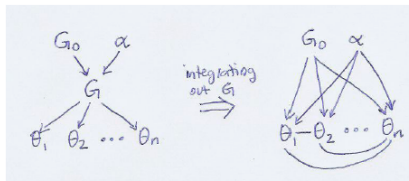 G₀ α
G
θ₁ θ₂ ... θₙ
integrating
out G
⇒
G₀ α
θ₁ θ₂ ... θₙ